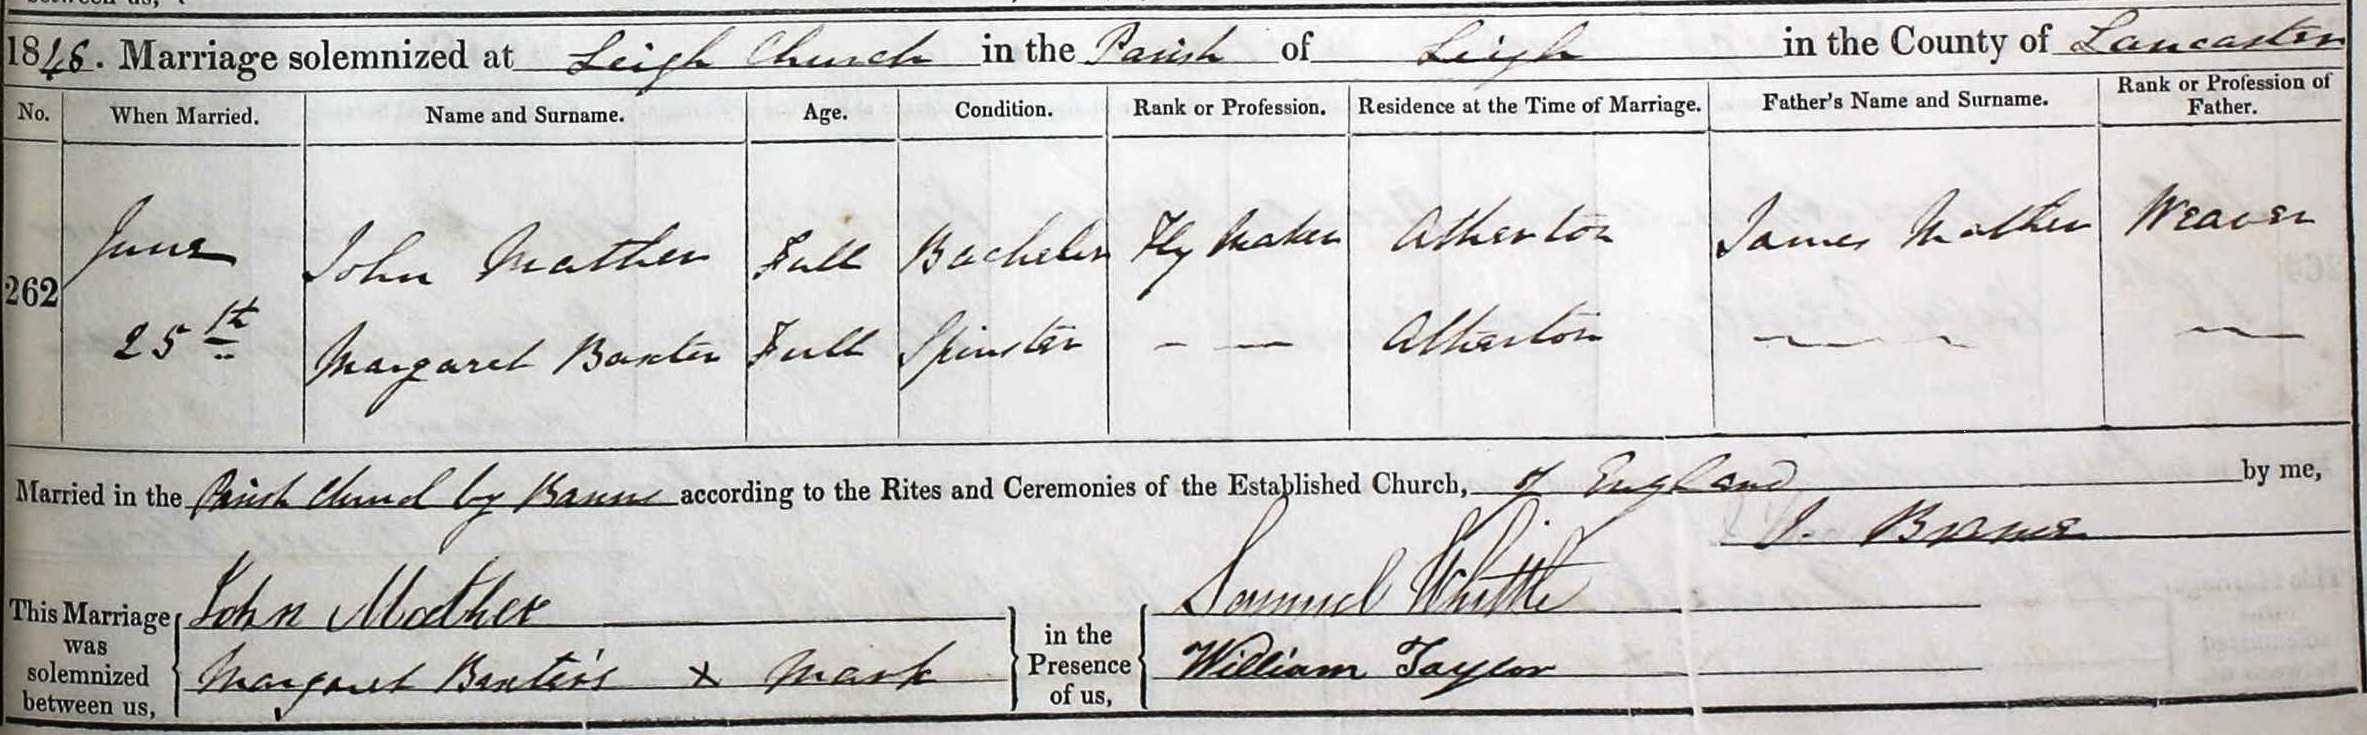 1848. Marriage solemnized at Leigh Church in the Parish of Leigh in the County of Lancaster
No. When Married. Name and Surname. Age. Condition. Rank or Profession. Residence at the Time of Marriage. Father's Name and Surname. Rank or Profession of Father.
262 June John Mather Full Bachelor Fly Maker Atherton James Mather Weaver
25th Margaret Baxter Full Spinster — — Atherton — — —
Married in the Parish Church by Banns according to the Rites and Ceremonies of the Established Church, of England by me,
J.
This Marriage was solemnized between us, John Mather in the Presence of us, Samuel Whittle
Margaret Baxter's x Mark William Taylor